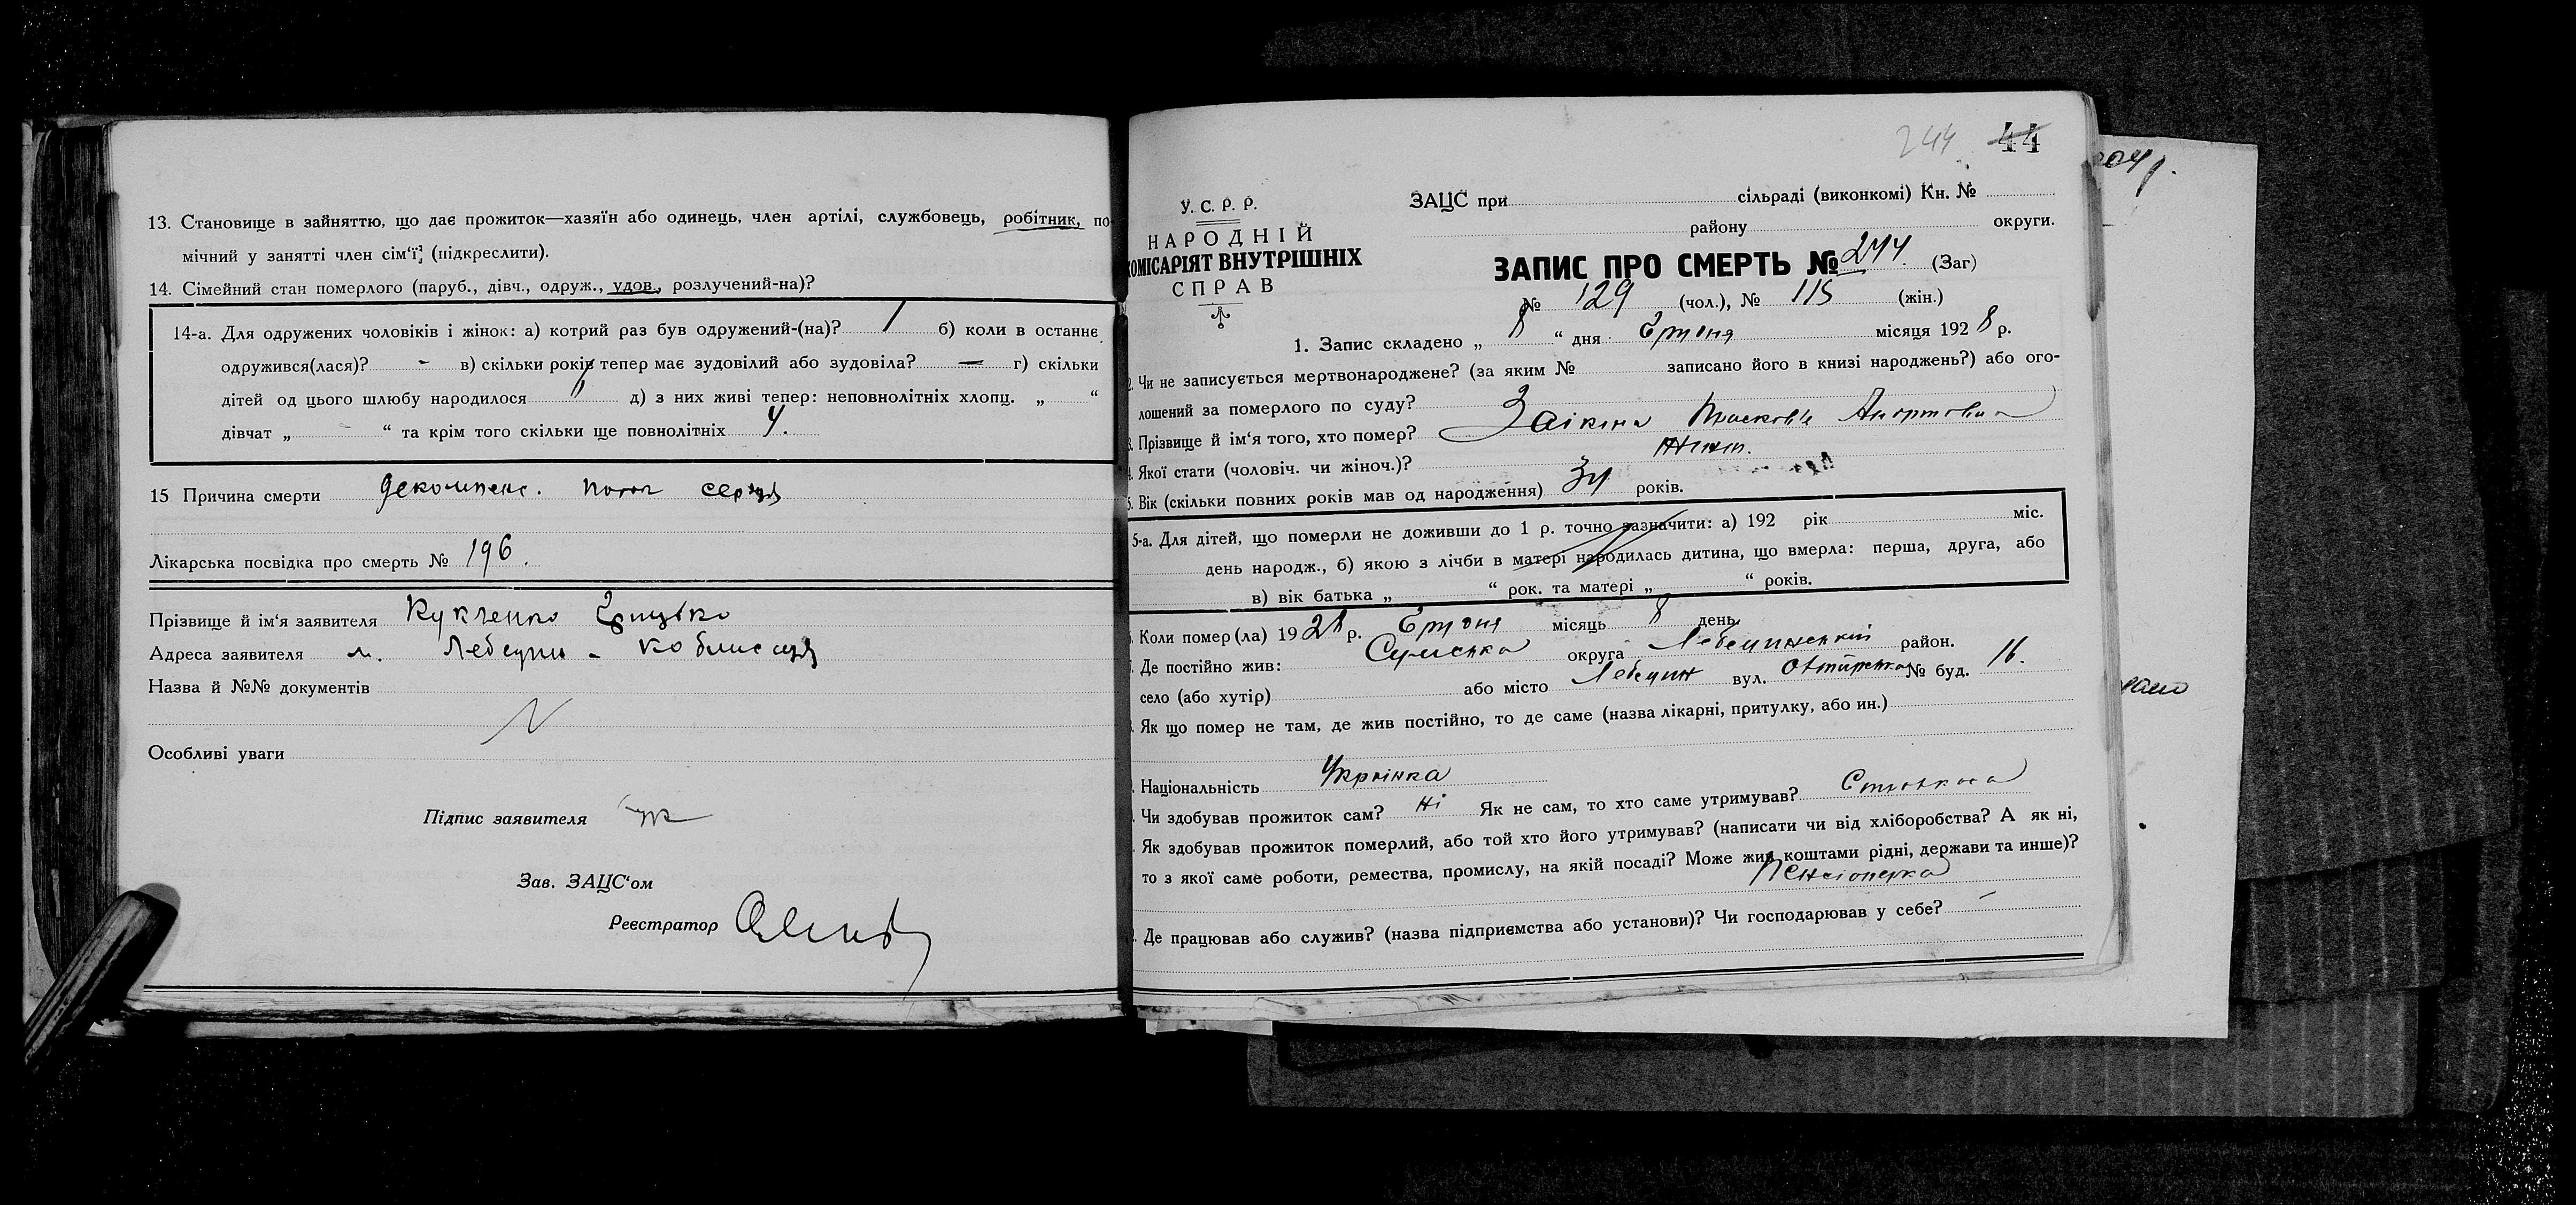 13. Становище в зайняттю, що дає прожиток—хазяїн або одинець, член артілі, службовець, робітник, по-
мічний у занятті член сім‘ї; (підкреслити).
14. Сімейний стан померлого (паруб., дівч., одруж., удов., розлучений-на)?
14-а. Для одружених чоловіків і жінок: а) котрий раз був одружений-(на)? 1 б) коли в останнє
одружився(лася)? - в) скільки років тепер має зудовілий або зудовіла? — г) скільки
дітей од цього шлюбу народилося 11 д) з них живі тепер: неповнолітніх хлопц. „ “
дівчат „ - “ та крім того скільки ще повнолітніх 4.
15 Причина смерти декомпенс. серця
Лікарська посвідка про смерть № 196.
Прізвище й ім‘я заявителя
Адреса заявителя м. Лебедин -
Назва й №№ документів
Особливі уваги
Підпис заявителя
Зав. ЗАЦС‘ом
Реєстратор
244 44
У. С. Р. Р.
НАРОДНІЙ
КОМІСАРІЯТ ВНУТРІШНІХ
СПРАВ
ЗАЦС при сільраді (виконкомі) Кн. №
району округи.
ЗАПИС ПРО СМЕРТЬ № 244. (Заг)
№ 129 (чол.), № 115 (жін.)
1. Запис складено „ 8 “ дня місяця 1928 р.
2. Чи не записується мертвонароджене? (за яким № записано його в книзі народжень?) або ого-
лошений за померлого по суду?
3. Прізвище й ім‘я того, хто помер? Заікина
4. Якої стати (чоловіч. чи жіноч.)? Жіноч.
5. Вік (скільки повних років мав од народження) років.
5-а. Для дітей, що померли не доживши до 1 р. точно зазначити: а) 192 рік міс.
день народж., б) якою з лічби в матері народилась дитина, що вмерла: перша, друга, або
в) вік батька „ “ рок. та матері „ “ років.
Коли помер(ла) 1928 р. місяць 8 день
Де постійно жив: Сумська округа Лебединський район.
село (або хутір) або місто Лебедин вул. № буд. 16.
Як що помер не там, де жив постійно, то де саме (назва лікарні, притулку, або ин.)
Національність Українка
Чи здобував прожиток сам? Ні Як не сам, то хто саме утримував?
Як здобував прожиток померлий, або той хто його утримував? (написати чи від хліборобства? А як ні,
то з якої саме роботи, ремества, промислу, на якій посаді? Може жив коштами рідні, держави та инше)?
Пенсіонерка
Де працював або служив? (назва підприємства або установи)? Чи господарював у себе? -